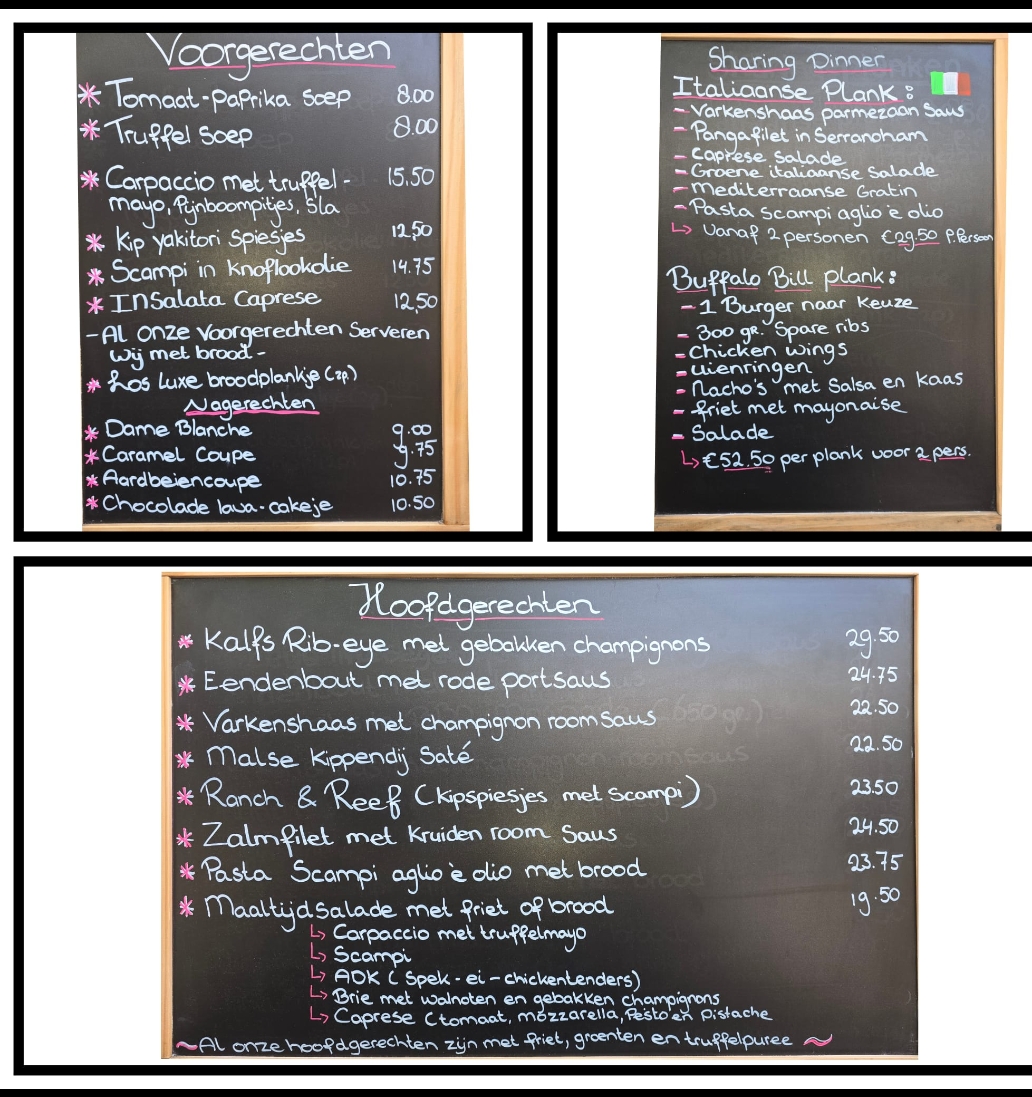 Voorgerechten
* Tomaat-Paprika Soep 8.00
* Truffel Soep 8.00
* Carpaccio met truffel- 15,50
mayo, Pijnboompitjes, Sla
* Kip yakitori Spiesjes 12,50
* Scampi in Knoflookolie 14.75
* INSalata Caprese 12,50
- Al onze Voorgerechten Serveren
wij met brood -
* Los Luxe broodplankje (2p.)
Nagerechten
* Dame Blanche 9.00
* Caramel Coupe 9.75
* Aardbeiencoupe 10.75
* Chocolade lava-cakeje 10.50
Sharing Dinner
Italiaanse Plank:
- Varkenshaas parmezaan Saus
- Pangafilet in Serranoham
- Caprese Salade
- Groene italiaanse Salade
- Mediterraanse Gratin
- Pasta Scampi aglio è olio
↳ Vanaf 2 personen €29.50 P.Persoon
Buffalo Bill plank:
- 1 Burger naar Keuze
- 300 gr. Spare ribs
- Chicken wings
- Uienringen
- Nacho's met Salsa en kaas
- friet met mayonaise
- Salade
↳ €52.50 per plank voor 2 pers.
Hoofdgerechten
* Kalfs Rib-eye met gebakken champignons 29.50
* Eendenbout met rode portsaus 24.75
* Varkenshaas met champignon room Saus 22.50
* Malse Kippendij Saté 22.50
* Ranch & Reef (Kipspiesjes met Scampi) 23.50
* Zalmfilet met Kruiden room Saus 24.50
* Pasta Scampi aglio è olio met brood 23.75
* Maaltijd Salade met friet of brood 19.50
↳ Carpaccio met truffelmayo
↳ Scampi
↳ AOK (Spek - ei - chickentenders)
↳ Brie met walnoten en gebakken champignons
↳ Caprese (tomaat, mozzarella, Pesto en Pistache
~ Al onze hoofdgerechten zijn met friet, groenten en truffelpuree ~